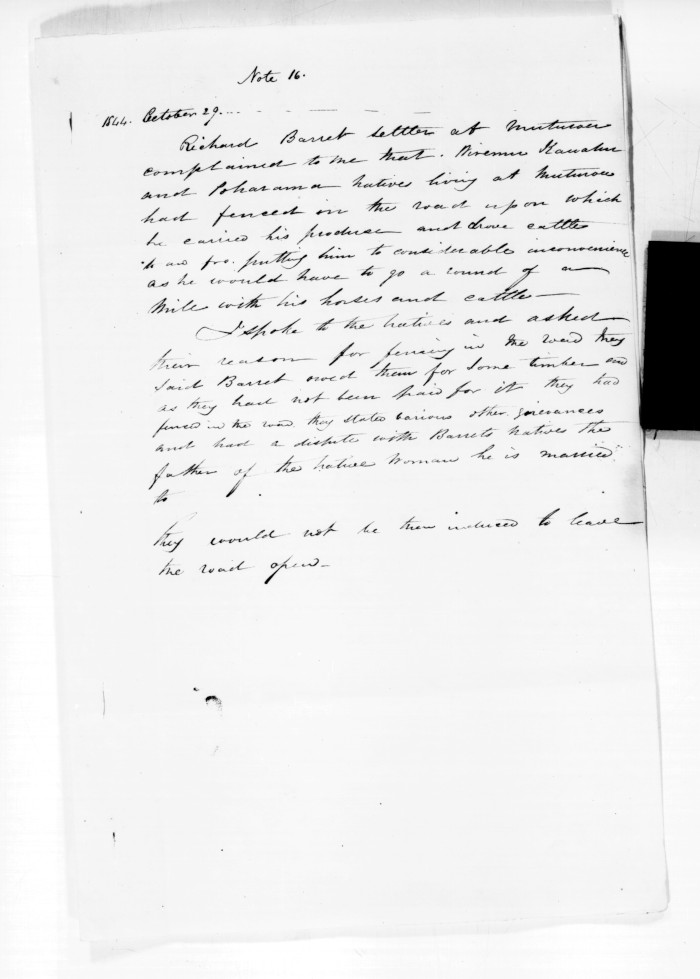 Note 16.
1844. October 29.
Richard Barret settler at Muturoa
complained to me that
and Poharama natives living at Muturoa
had fenced in the road upon which
he carried his produce and drove cattle
to and fro. putting him to considerable inconvenience
as he would have to go a round of a
mile with his horses and cattle —
I spoke to the natives and asked
their reason for fencing in the road they
said Barret owed them for some timber and
as they had not been paid for it they had
fenced in the road they stated various other grievances
and had a dispute with Barrets natives the
father of the native woman he is married
to
they would not be then induced to leave
the road open —